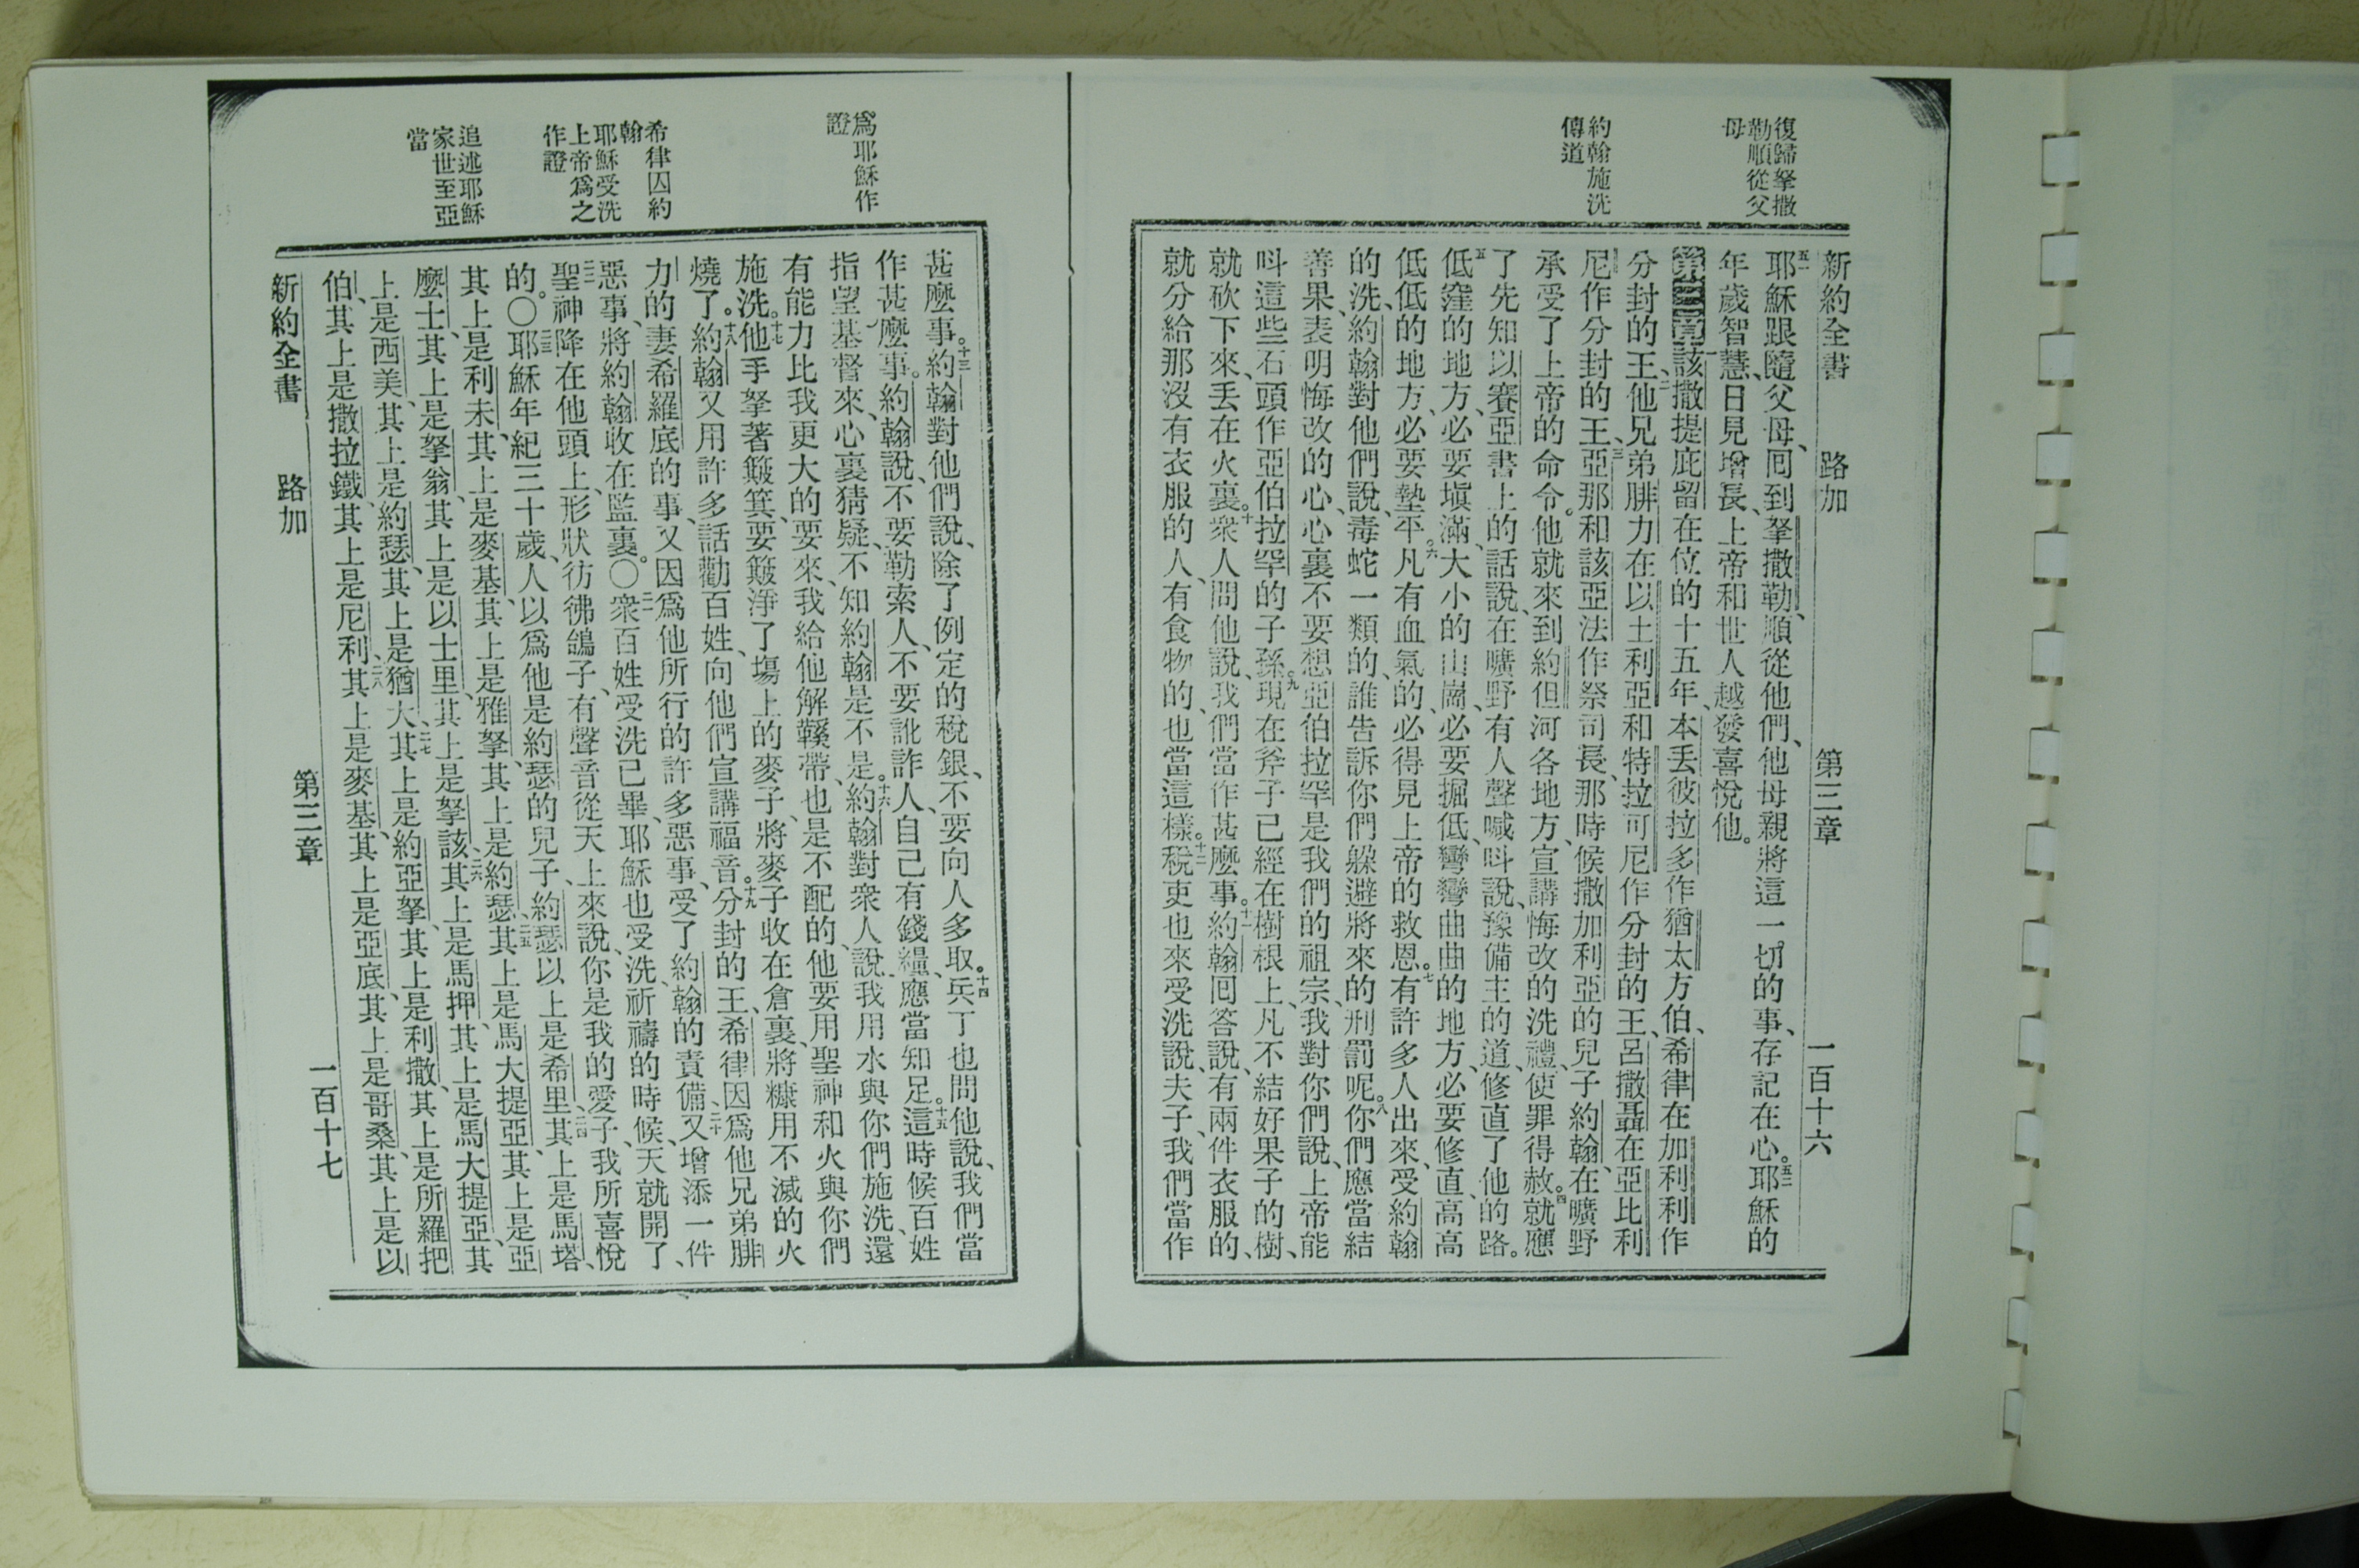 復歸拏撒
勒順從父
母
約翰施洗
傳道
新約全書 路加 第三章 一百十六
五一耶穌跟隨父母、回到拏撒勒、順從他們、他母親將這一切的事、存記在心。五二耶穌的
年歲智慧、日見增長、上帝和世人越發喜悅他。
第三章一該撒提庇留在位的十五年、本丟彼拉多作猶太方伯、希律在加利利作
分封的王、二他兄弟腓力在以土利亞和特拉可尼作分封的王、呂撒聶在亞比利
尼作分封的王、三亞那和該亞法作祭司長、那時候撒加利亞的兒子約翰、在曠野
承受了上帝的命令。他就來到約但河各地方、宣講悔改的洗禮、使罪得赦。四就應
了先知以賽亞書上的話說、在曠野有人聲喊呌說、豫備主的道、修直了他的路。
五低窪的地方、必要塡滿、大小的山崗、必要掘低、彎彎曲曲的地方、必要修直、高高
低低的地方、必要墊平。六凡有血氣的、必得見上帝的救恩。七有許多人出來、受約翰
的洗、約翰對他們說、毒蛇一類的、誰告訴你們躱避將來的刑罰呢。八你們應當結
善果、表明悔改的心、心裏不要想亞伯拉罕是我們的祖宗、我對你們說、上帝能
呌這些石頭作亞伯拉罕的子孫。九現在斧子已經在樹根上、凡不結好果子的樹、
就砍下來、丟在火裏。十衆人問他說、我們當作甚麼事。十一約翰回答說、有兩件衣服的、
就分給那沒有衣服的人、有食物的、也當這樣。十二稅吏也來受洗說、夫子、我們當作
爲耶穌作
證
希律囚約
翰
耶穌受洗
上帝爲之
作證
追述耶穌
家世至亞
當
甚麼事。十三約翰對他們說、除了例定的稅銀、不要向人多取。十四兵丁也問他說、我們當
作甚麼事。約翰說、不要勒索人、不要訛詐人、自己有錢糧、應當知足。十五這時候百姓
指望基督來、心裏猜疑、不知約翰是不是。十六約翰對衆人說、我用水與你們施洗、還
有能力比我更大的要來、我給他解鞵帶、也是不配的、他要用聖神和火與你們
施洗。十七他手拏著簸箕、要簸淨了塲上的麥子、將麥子收在倉裏、將糠用不滅的火
燒了。十八約翰又用許多話勸百姓、向他們宣講福音。十九分封的王、希律因爲他兄弟腓
力的妻希羅底的事、又因爲他所行的許多惡事、受了約翰的責備、二十又增添一件
惡事、將約翰收在監裏。〇二一衆百姓受洗已畢、耶穌也受洗、祈禱的時候、天就開了、
二二聖神降在他頭上、形狀彷彿鴿子、有聲音從天上來說、你是我的愛子、我所喜悅
的。〇二三耶穌年紀三十歲、人以爲他是約瑟的兒子、約瑟以上是希里、二四其上是馬塔、
其上是利未、其上是麥基、其上是雅拏、其上是約瑟、二五其上是馬大提亞、其上是亞
麼士、其上是拏翁、其上是以士里、其上是拏該、二六其上是馬押、其上是馬大提亞、其
上是西美、其上是約瑟、其上是猶大、二七其上是約亞拏、其上是利撒、其上是所羅把
伯、其上是撒拉鐵、其上是尼利、二八其上是麥基、其上是亞底、其上是哥桑、其上是以
新約全書 路加 第三章 一百十七